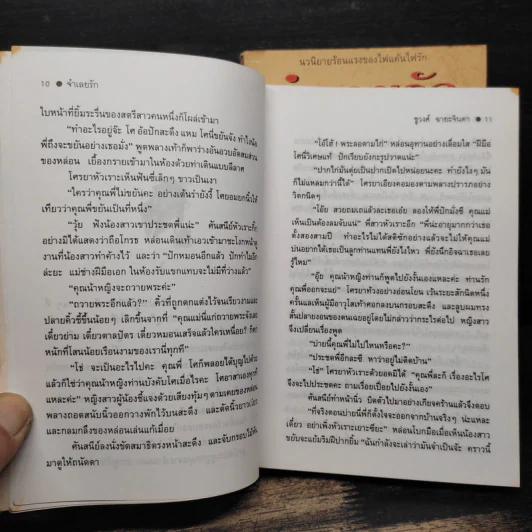 นวนิยายร้อนแรงของไฟแค้นไฟรัก
10 ● จำเลยรัก
ใบหน้าที่ยิ้มระรื่นของสตรีสาวคนหนึ่งก็โผล่เข้ามา
"ทำอะไรอยู่จ๊ะ โศ อ้อปักสะดึง แหม โศนี่ขยันจัง ทำไมน้อ
พี่ถึงจะขยันอย่างเธอมั่ง" พูดพลางเท้าก็พาร่างอันอวบอัดสมส่วน
ของหล่อน เยื้องกรายเข้ามาในห้องด้วยท่าเดินแบบลีลาศ
โศรยาหัวเราะเห็นฟันซี่เล็กๆ ขาวเป็นเงา
"ใครว่าคุณพี่ไม่ขยันคะ อย่างเต้นรำยังงี้ โศยอมยกนิ้วให้
เทียวว่าคุณพี่ขยันเป็นที่หนึ่ง"
"วุ้ย ฟังน้องสาวเขาประชดพี่แน่ะ" ศันสนีย์หัวเราะกิ๊ก
อย่างมิได้แสดงว่าถือโกรธ หล่อนเดินเท้าเอวเข้ามาชะโงกหน้าดู
งานที่น้องสาวทำค้างไว้ และว่า "ปักหมอนอีกแล้ว ปักทำไมอีก
ล่ะยะ แม่ช่างฝีมือเอก ในห้องรับแขกแทบจะไม่มีที่วางแล้ว"
"คุณน้าหญิงจะถวายพระค่ะ"
"ถวายพระอีกแล้ว?" คิ้วที่ถูกตกแต่งไว้จนเรียวงามและ
ปลายคิ้วชี้ขึ้นน้อยๆ เลิกขึ้นจากที่ "คุณแม่นี่แก่ถวายพระจัง
เดี๋ยวย่าม เดี๋ยวตาลปัตร เดี๋ยวหมอนเสร็จแล้วใครเหนื่อย? ก็ต
หนักที่โสนน้อยเรือนงามของเรานี่ทุกที"
"โธ่ จะเป็นอะไรไปคะ คุณพี่ โศก็พลอยได้บุญไปด้วย
แล้วก็ใช่ว่าคุณน้าหญิงท่านบังคับโศเมื่อไรคะ โศอาสาเองทุกที
แหละค่ะ" หญิงสาวผู้น้องชี้แจงด้วยเสียงทุ้มๆ ตามเคยของหล่อน
พลางถอดสนับนิ้วออกวางพักไว้บนสะดึง และดัดนิ้วยาวเรียว
และกลมกลึงของหล่อนเล่นแก้เมื่อย
ศันสนีย์ลงนั่งขัดสมาธิตรงหน้าสะดึง และจับกรอบไม้หัน
มาดูให้ถนัดตา
ชูวงศ์ ฉายะจินดา ● 11
"โอ้โฮ้! พระลอตามไก่" หล่อนอุทานอย่างเลื่อมใส "ฝีมือ
โศนี่วิเศษแท้ ปักเรียบยังกะรูปวาดแน่ะ"
"ปากไก่มันตุ่ยเป็นปากเป็ดไปหน่อยนะคะ ทำยังไงๆ มัน
ก็ไม่แหลมกว่านี้ได้" โศรยาเอียงคอมองตามพลางปรารภอย่าง
วิตกนิดๆ
"โอ๊ย สวยถมเถแล้วละเธอเอ๋ย ลองให้พี่ปักมั่งซี คุณแม่
เห็นเป็นต้องลมจับแน่" พี่สาวหัวเราะอีก "พี่น่ะอายุมากกว่าเธอ
ตั้งสองสามปี ทำอะไรไม่ได้สักซีกอย่างแล้วจะไม่ให้คุณแม่
บ่นอยากได้เธอเป็นลูกท่านแทนพี่ยังไงไหว พี่ยังนึกอิจฉาเธอเลย
รู้ไหม"
"อุ๊ย คุณน้าหญิงท่านก็พูดไปยังงั้นเองแหละค่ะ ท่านรัก
คุณพี่ออกจะแย่" โศรยาท้วงอย่างอ่อนโยน เว้นระยะสักนิดหนึ่ง
ครั้นแลเห็นผู้มีอาวุโสเท้าศอกลงบนกรอบสะดึง และลูบผมทรง
สั้นปลายงอนของตนเฉยอยู่โดยไม่กล่าวกระไรต่อไป หญิงสาว
จึงเปลี่ยนเรื่องพูด
"บ่ายนี้คุณพี่ไม่ไปไหนหรือคะ?"
"ประชดพี่อีกละซี หาว่าอยู่ไม่ติดบ้าน"
"โธ่" โศรยาหัวเราะด้วยอดมิได้ "คุณพี่ละก็ เรื่องอะไรโศ
จึงจะไปประชดคะ ถามเรื่อยเปื่อยไปยังงั้นเอง"
ศันสนีย์ทำหน้านิ่ว บิดตัวไปมาอย่างเกียจคร้านแล้วจึงตอบ
"ที่จริงตอนบ่ายนี่พี่ก็ตั้งใจจะออกจากบ้านจริงๆ น่ะแหละ
เดี๋ยว อย่าเพิ่งหัวเราะเยาะซียะ" หล่อนโบกมือเมื่อเห็นน้องสาว
ขยับจะแย้มริมฝีปากยิ้ม "ฉันกำลังจะเล่าว่ามันจำเป็นจ้ะ คราวนี้